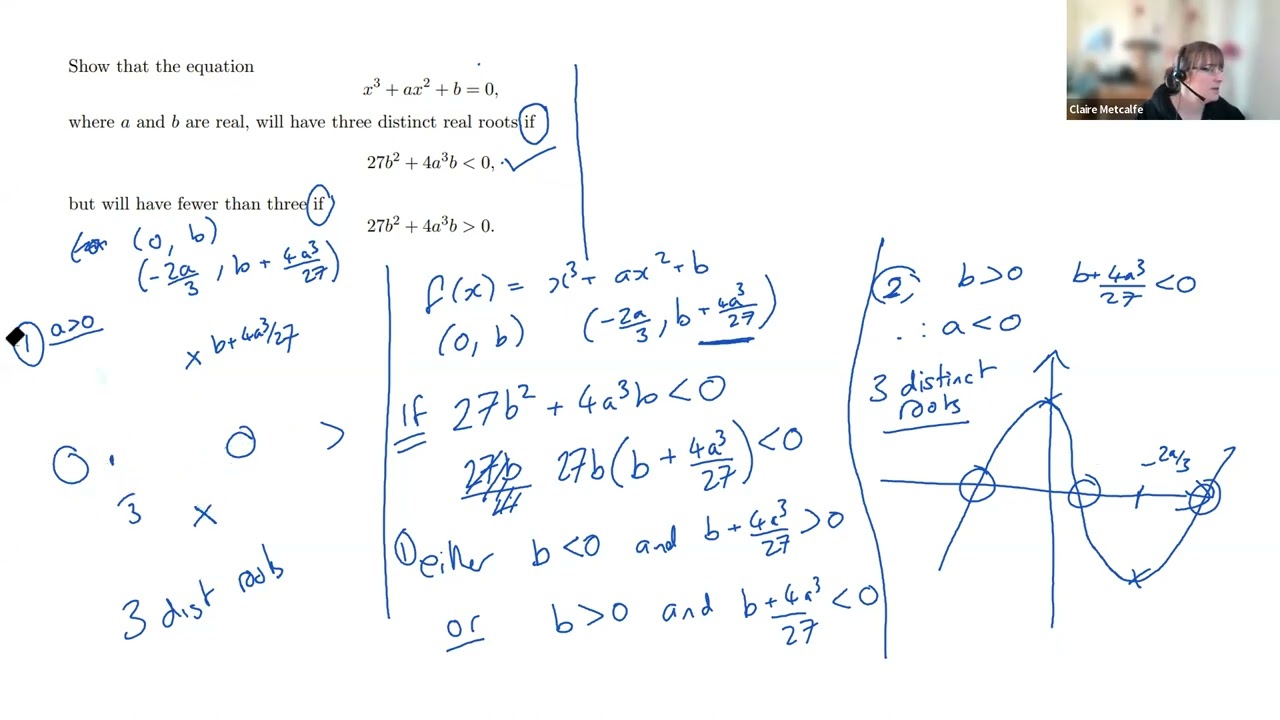 Show that the equation
x³ + ax² + b = 0,
where a and b are real, will have three distinct real roots if
27b² + 4a³b < 0,
but will have fewer than three if
27b² + 4a³b > 0.
(0, b)
(-2a/3, b + 4a³/27)
① a>0
× b+4a³/27
3 dist roots
f(x) = x³ + ax² + b
(0, b) (-2a/3, b + 4a³/27)
If 27b² + 4a³b < 0
27b(b + 4a³/27) < 0
① either b<0 and b + 4a³/27 > 0
or b>0 and b + 4a³/27 < 0
② b>0 b+4a³/27 < 0
∴ a<0
3 distinct
roots
-2a/3
Claire Metcalfe